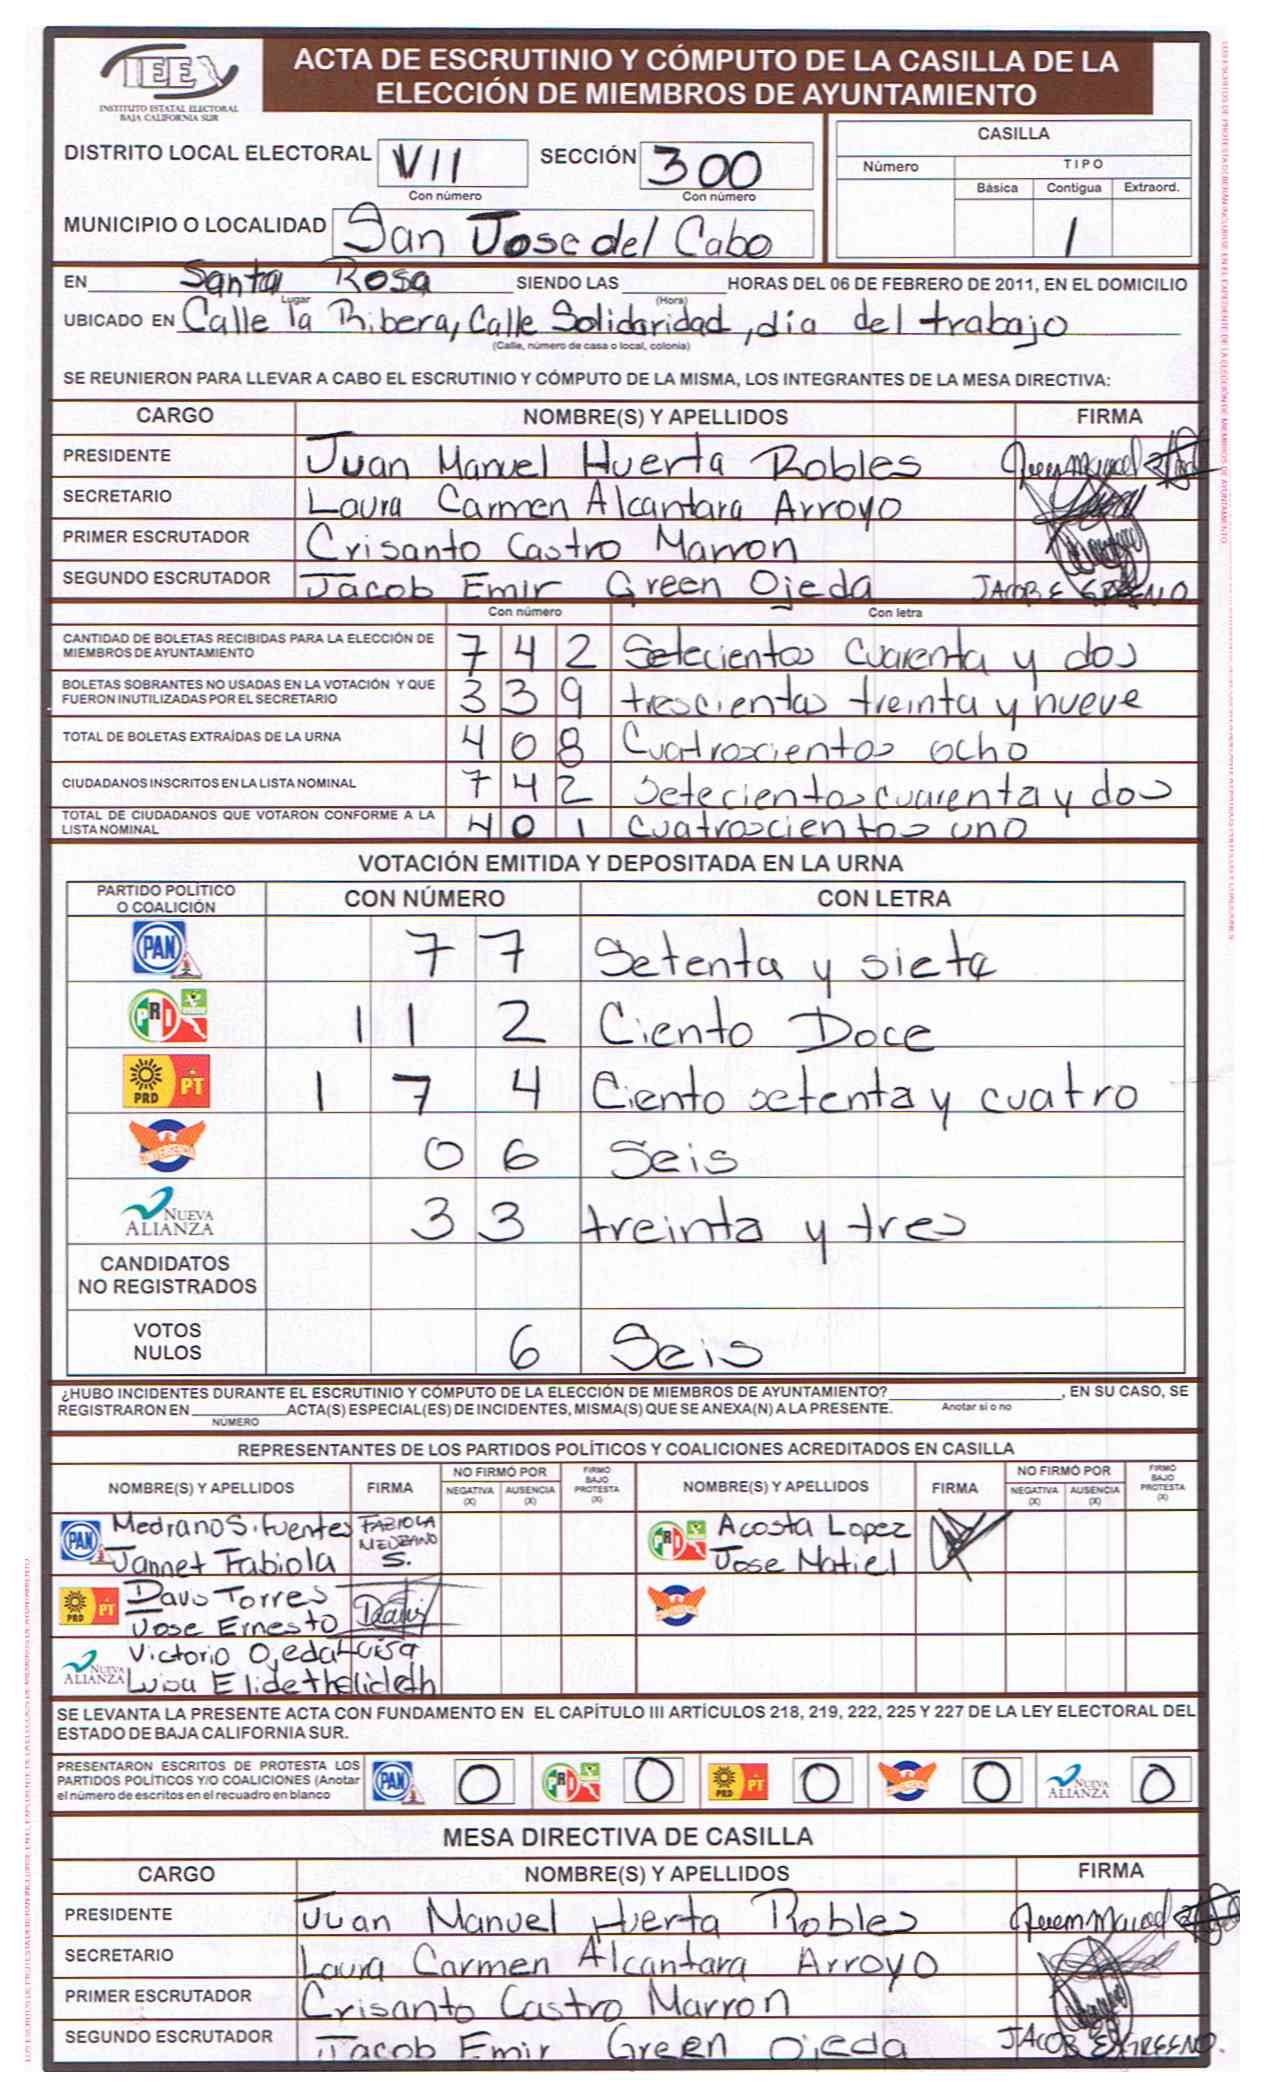 IEEX
INSTITUTO ESTATAL ELECTORAL
BAJA CALIFORNIA SUR
ACTA DE ESCRUTINIO Y CÓMPUTO DE LA CASILLA DE LA
ELECCIÓN DE MIEMBROS DE AYUNTAMIENTO
DISTRITO LOCAL ELECTORAL VII SECCIÓN 300
Con número Con número
MUNICIPIO O LOCALIDAD San Jose del Cabo
CASILLA
Número TIPO
Básica Contigua Extraord.
1
EN Santa Rosa SIENDO LAS HORAS DEL 06 DE FEBRERO DE 2011, EN EL DOMICILIO
Lugar (Hora)
UBICADO EN Calle la Ribera, Calle Solidaridad, dia del trabajo
(Calle, número de casa o local, colonia)
SE REUNIERON PARA LLEVAR A CABO EL ESCRUTINIO Y CÓMPUTO DE LA MISMA, LOS INTEGRANTES DE LA MESA DIRECTIVA:
CARGO NOMBRE(S) Y APELLIDOS FIRMA
PRESIDENTE Juan Manuel Huerta Robles
SECRETARIO Laura Carmen Alcantara Arroyo
PRIMER ESCRUTADOR Crisanto Castro Marron
SEGUNDO ESCRUTADOR Jacob Emir Green Ojeda JACOB E GREEN O.
Con número Con letra
CANTIDAD DE BOLETAS RECIBIDAS PARA LA ELECCIÓN DE
MIEMBROS DE AYUNTAMIENTO 742 Setecientos Cuarenta y dos
BOLETAS SOBRANTES NO USADAS EN LA VOTACIÓN Y QUE
FUERON INUTILIZADAS POR EL SECRETARIO 339 trescientas treinta y nueve
TOTAL DE BOLETAS EXTRAÍDAS DE LA URNA 408 Cuatroscientos ocho
CIUDADANOS INSCRITOS EN LA LISTA NOMINAL 742 Setecientos cuarenta y dos
TOTAL DE CIUDADANOS QUE VOTARON CONFORME A LA
LISTA NOMINAL 401 Cuatroscientos uno
VOTACIÓN EMITIDA Y DEPOSITADA EN LA URNA
PARTIDO POLÍTICO
O COALICIÓN CON NÚMERO CON LETRA
PAN 77 Setenta y siete
PRI 112 Ciento Doce
PRD PT 174 Ciento setenta y cuatro
CONVERGENCIA 06 Seis
NUEVA ALIANZA 33 treinta y tres
CANDIDATOS
NO REGISTRADOS
VOTOS
NULOS 6 Seis
¿HUBO INCIDENTES DURANTE EL ESCRUTINIO Y CÓMPUTO DE LA ELECCIÓN DE MIEMBROS DE AYUNTAMIENTO? , EN SU CASO, SE
Anotar si o no
REGISTRARON EN ACTA(S) ESPECIAL(ES) DE INCIDENTES, MISMA(S) QUE SE ANEXA(N) A LA PRESENTE.
NÚMERO
REPRESENTANTES DE LOS PARTIDOS POLÍTICOS Y COALICIONES ACREDITADOS EN CASILLA
NOMBRE(S) Y APELLIDOS FIRMA NO FIRMÓ POR NEGATIVA (X) AUSENCIA (X) FIRMÓ BAJO PROTESTA (X) NOMBRE(S) Y APELLIDOS FIRMA NO FIRMÓ POR NEGATIVA (X) AUSENCIA (X) FIRMÓ BAJO PROTESTA (X)
PAN Medrano S. Fuentes FABIOLA MEDRANO S. PRI Acosta Lopez
Jannet Fabiola Jose Matiel
PRD PT Davis Torres CONVERGENCIA
Jose Ernesto
NUEVA ALIANZA Victorio Ojeda Luisa
Luisa Elideth Elideth
SE LEVANTA LA PRESENTE ACTA CON FUNDAMENTO EN EL CAPÍTULO III ARTÍCULOS 218, 219, 222, 225 Y 227 DE LA LEY ELECTORAL DEL
ESTADO DE BAJA CALIFORNIA SUR.
PRESENTARON ESCRITOS DE PROTESTA LOS
PARTIDOS POLÍTICOS Y/O COALICIONES (Anotar
el número de escritos en el recuadro en blanco
PAN 0 PRI 0 PRD PT 0 CONVERGENCIA 0 NUEVA ALIANZA 0
MESA DIRECTIVA DE CASILLA
CARGO NOMBRE(S) Y APELLIDOS FIRMA
PRESIDENTE Juan Manuel Huerta Robles
SECRETARIO Laura Carmen Alcantara Arroyo
PRIMER ESCRUTADOR Crisanto Castro Marron
SEGUNDO ESCRUTADOR Jacob Emir Green Ojeda JACOB E GREEN O.